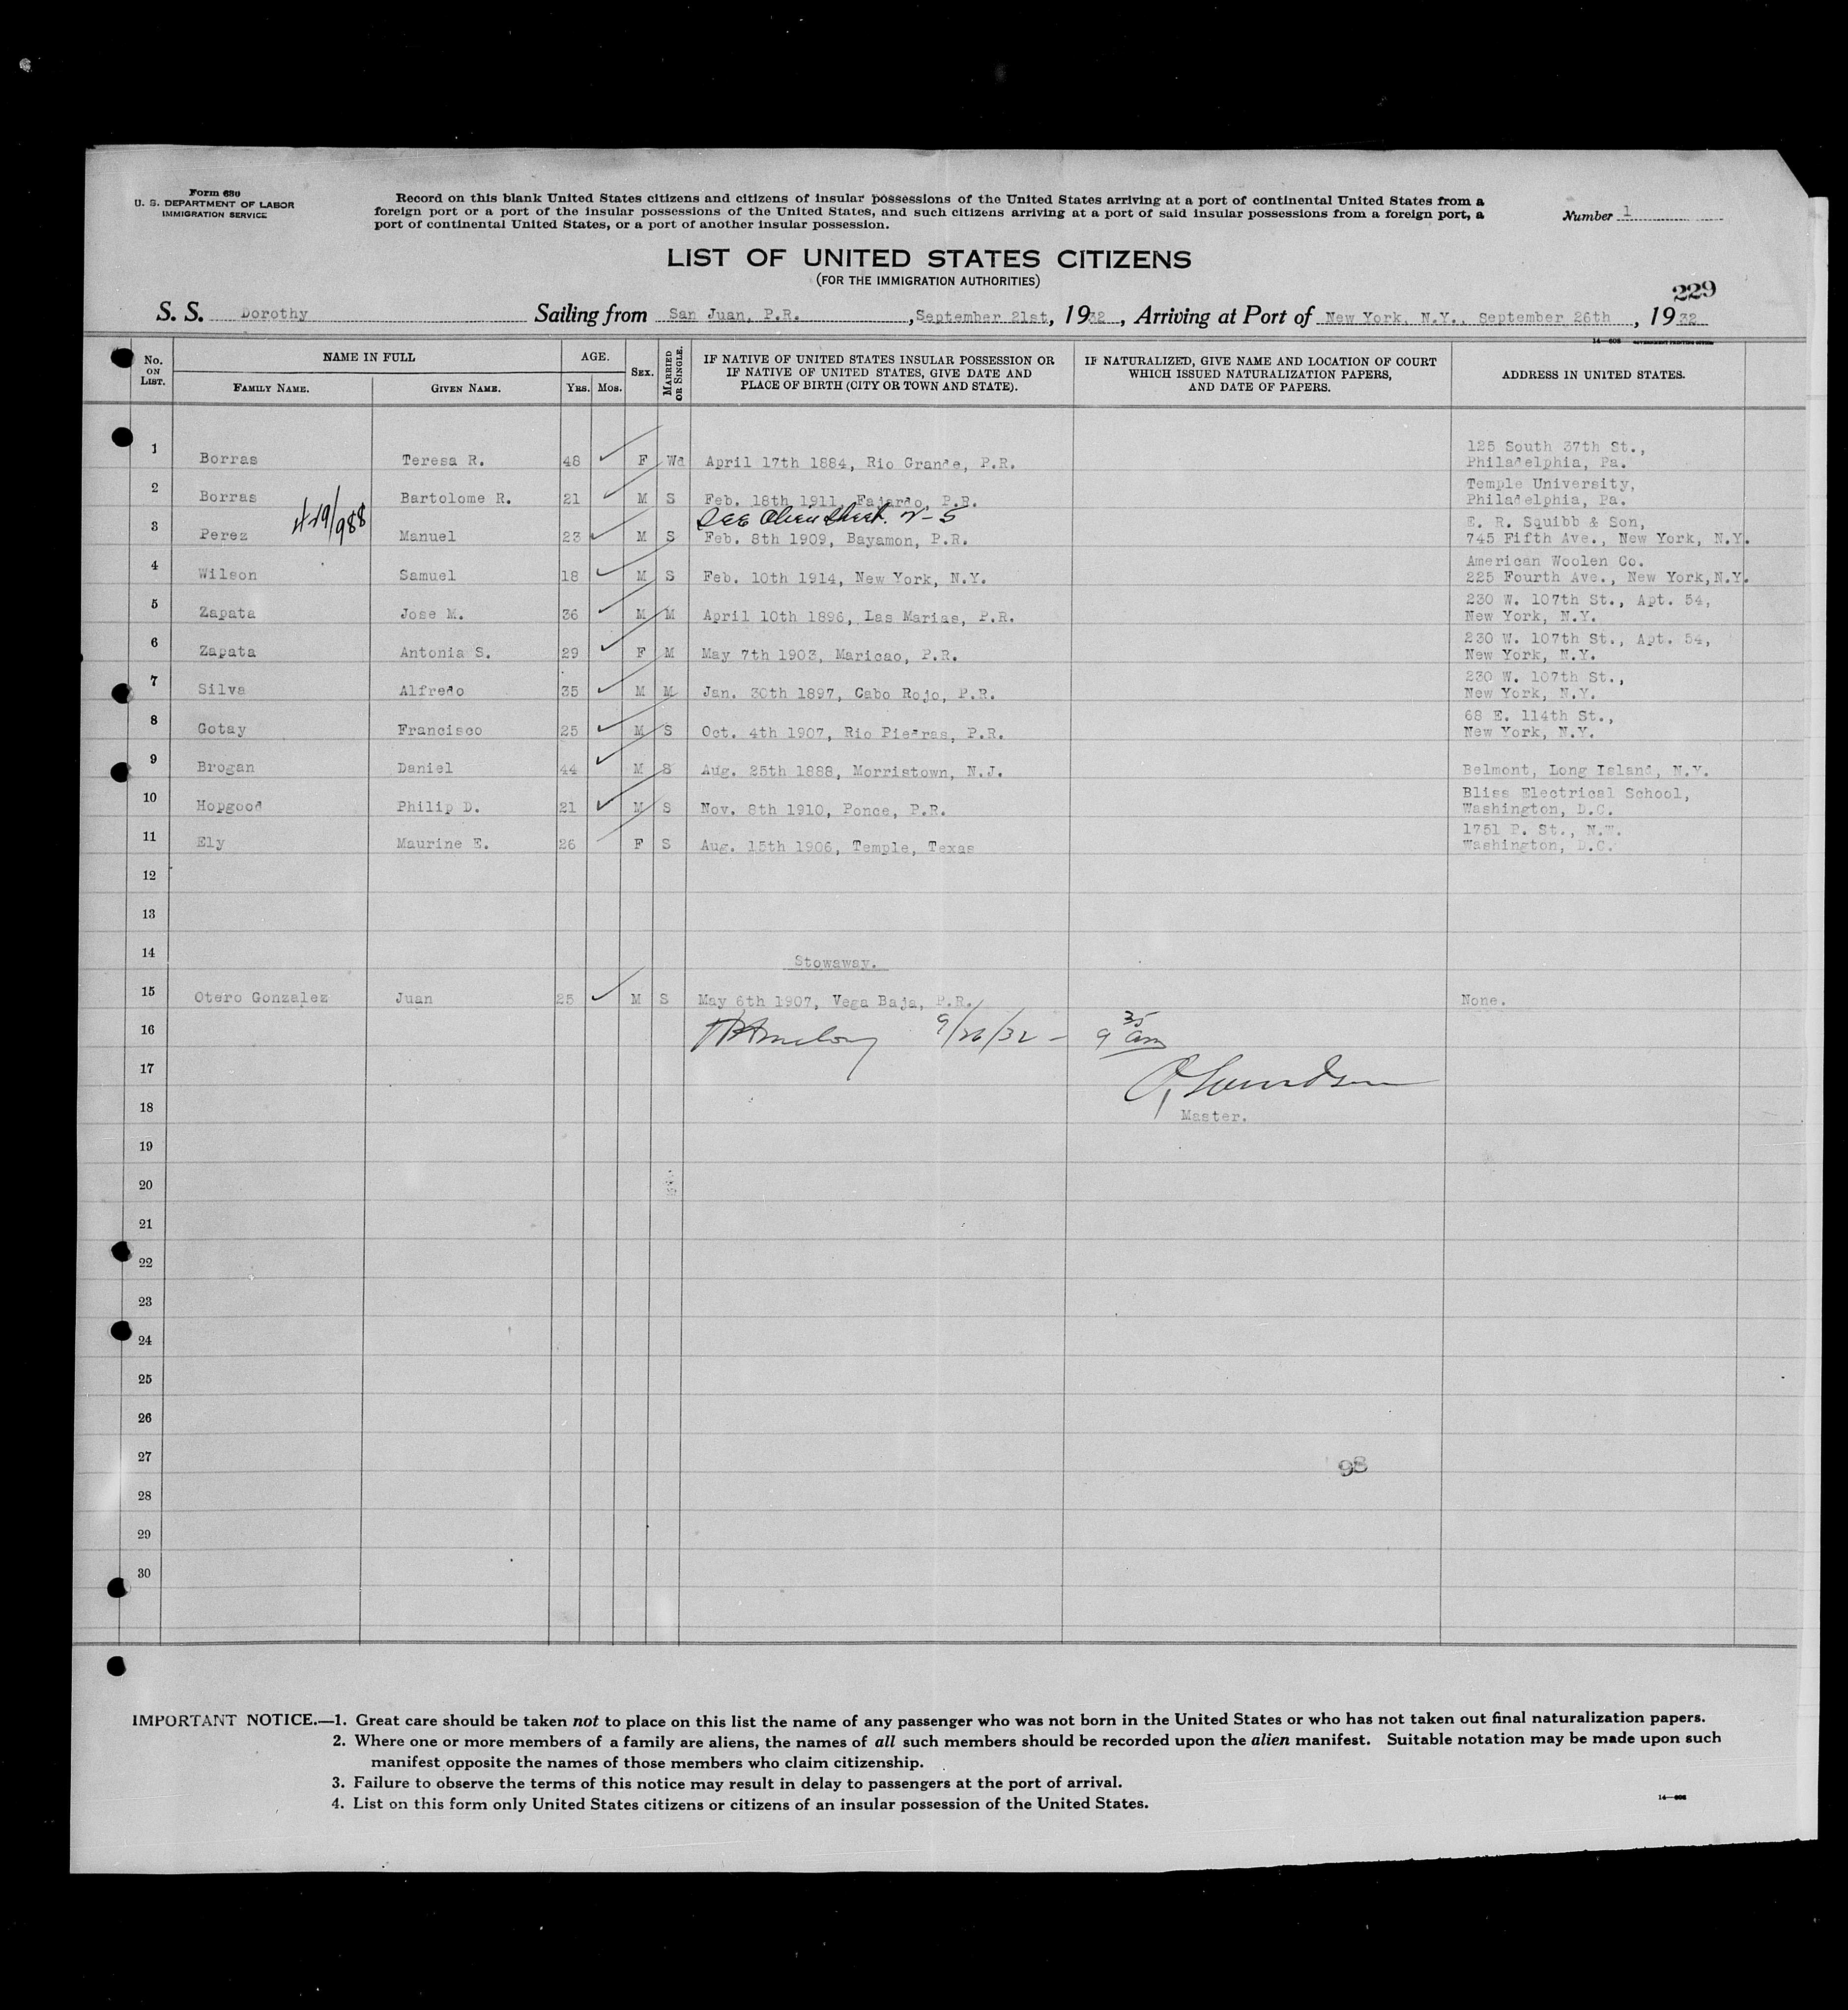 Form 630
U. S. DEPARTMENT OF LABOR
IMMIGRATION SERVICE
Record on this blank United States citizens and citizens of insular possessions of the United States arriving at a port of continental United States from a
foreign port or a port of the insular possessions of the United States, and such citizens arriving at a port of said insular possessions from a foreign port, a
port of continental United States, or a port of another insular possession.
Number 1
LIST OF UNITED STATES CITIZENS
(FOR THE IMMIGRATION AUTHORITIES)
229
S. S. Dorothy Sailing from San Juan, P.R. , September 21st, 1932 , Arriving at Port of New York, N.Y., September 26th , 1932
No. ON LIST. NAME IN FULL FAMILY NAME. GIVEN NAME. AGE. YRS. MOS. SEX. MARRIED OR SINGLE.
IF NATIVE OF UNITED STATES INSULAR POSSESSION OR
IF NATIVE OF UNITED STATES, GIVE DATE AND
PLACE OF BIRTH (CITY OR TOWN AND STATE).
IF NATURALIZED, GIVE NAME AND LOCATION OF COURT
WHICH ISSUED NATURALIZATION PAPERS,
AND DATE OF PAPERS.
ADDRESS IN UNITED STATES.
1 Borras Teresa R. 48 F Wd April 17th 1884, Rio Grande, P.R. 125 South 37th St.,
Philadelphia, Pa.
2 Borras Bartolome R. 21 M S Feb. 18th 1911, Fajardo, P.R. Temple University,
Philadelphia, Pa.
See Alien Sheet.
3 Perez Manuel 23 M S Feb. 8th 1909, Bayamon, P.R. E. R. Squibb & Son,
745 Fifth Ave., New York, N.Y.
4 Wilson Samuel 18 M S Feb. 10th 1914, New York, N.Y. American Woolen Co.
225 Fourth Ave., New York, N.Y.
5 Zapata Jose M. 36 M M April 10th 1896, Las Marias, P.R. 230 W. 107th St., Apt. 54,
New York, N.Y.
6 Zapata Antonia S. 29 F M May 7th 1903, Maricao, P.R. 230 W. 107th St., Apt. 54,
New York, N.Y.
7 Silva Alfredo 35 M M Jan. 30th 1897, Cabo Rojo, P.R. 230 W. 107th St.,
New York, N.Y.
8 Gotay Francisco 25 M S Oct. 4th 1907, Rio Piedras, P.R. 68 E. 114th St.,
New York, N.Y.
9 Brogan Daniel 44 M S Aug. 25th 1888, Morristown, N.J. Belmont, Long Island, N.Y.
10 Hopgood Philip D. 21 M S Nov. 8th 1910, Ponce, P.R. Bliss Electrical School,
Washington, D.C.
11 Ely Maurine E. 26 F S Aug. 15th 1906, Temple, Texas 1751 P. St., N.W.
Washington, D.C.
12
13
14 Stowaway.
15 Otero Gonzalez Juan 25 M S May 6th 1907, Vega Baja, P.R. None.
16 9/26/32 - 9 35 am
17
18 Master.
19
20
21
22
23
24
25
26
27 98
28
29
30
IMPORTANT NOTICE.—1. Great care should be taken not to place on this list the name of any passenger who was not born in the United States or who has not taken out final naturalization papers.
2. Where one or more members of a family are aliens, the names of all such members should be recorded upon the alien manifest. Suitable notation may be made upon such
manifest opposite the names of those members who claim citizenship.
3. Failure to observe the terms of this notice may result in delay to passengers at the port of arrival.
4. List on this form only United States citizens or citizens of an insular possession of the United States.